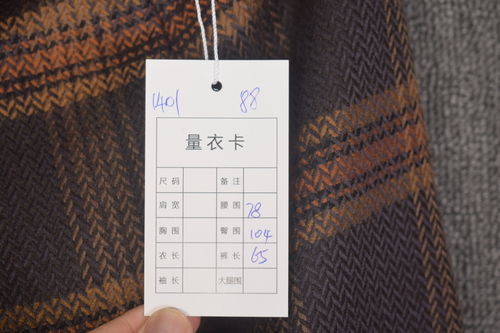 1401 88
量衣卡
尺码 备注
肩宽 腰围 78
胸围 臀围 104
衣长 裤长 65
袖长 大腿围